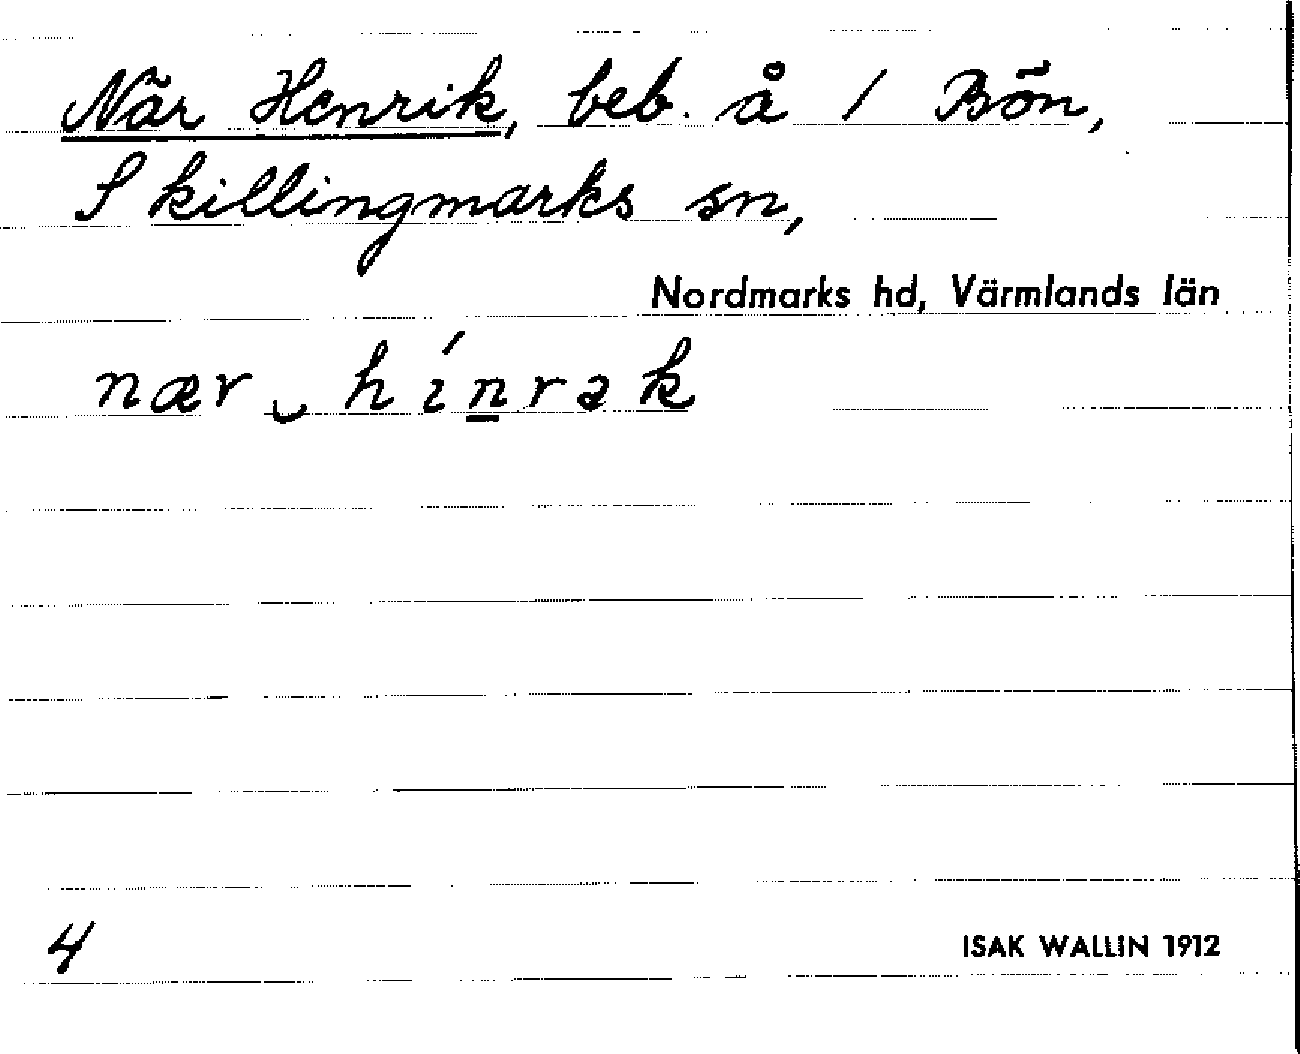 När Henrik, beb. å 1 Bön,
Skillingmarks sn,
Nordmarks hd, Värmlands län
nær ‿ hínrək
4
ISAK WALLIN 1912